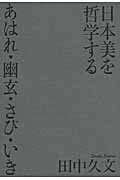 日本美を
哲学する
あはれ・幽玄・さび・いき
田中久文